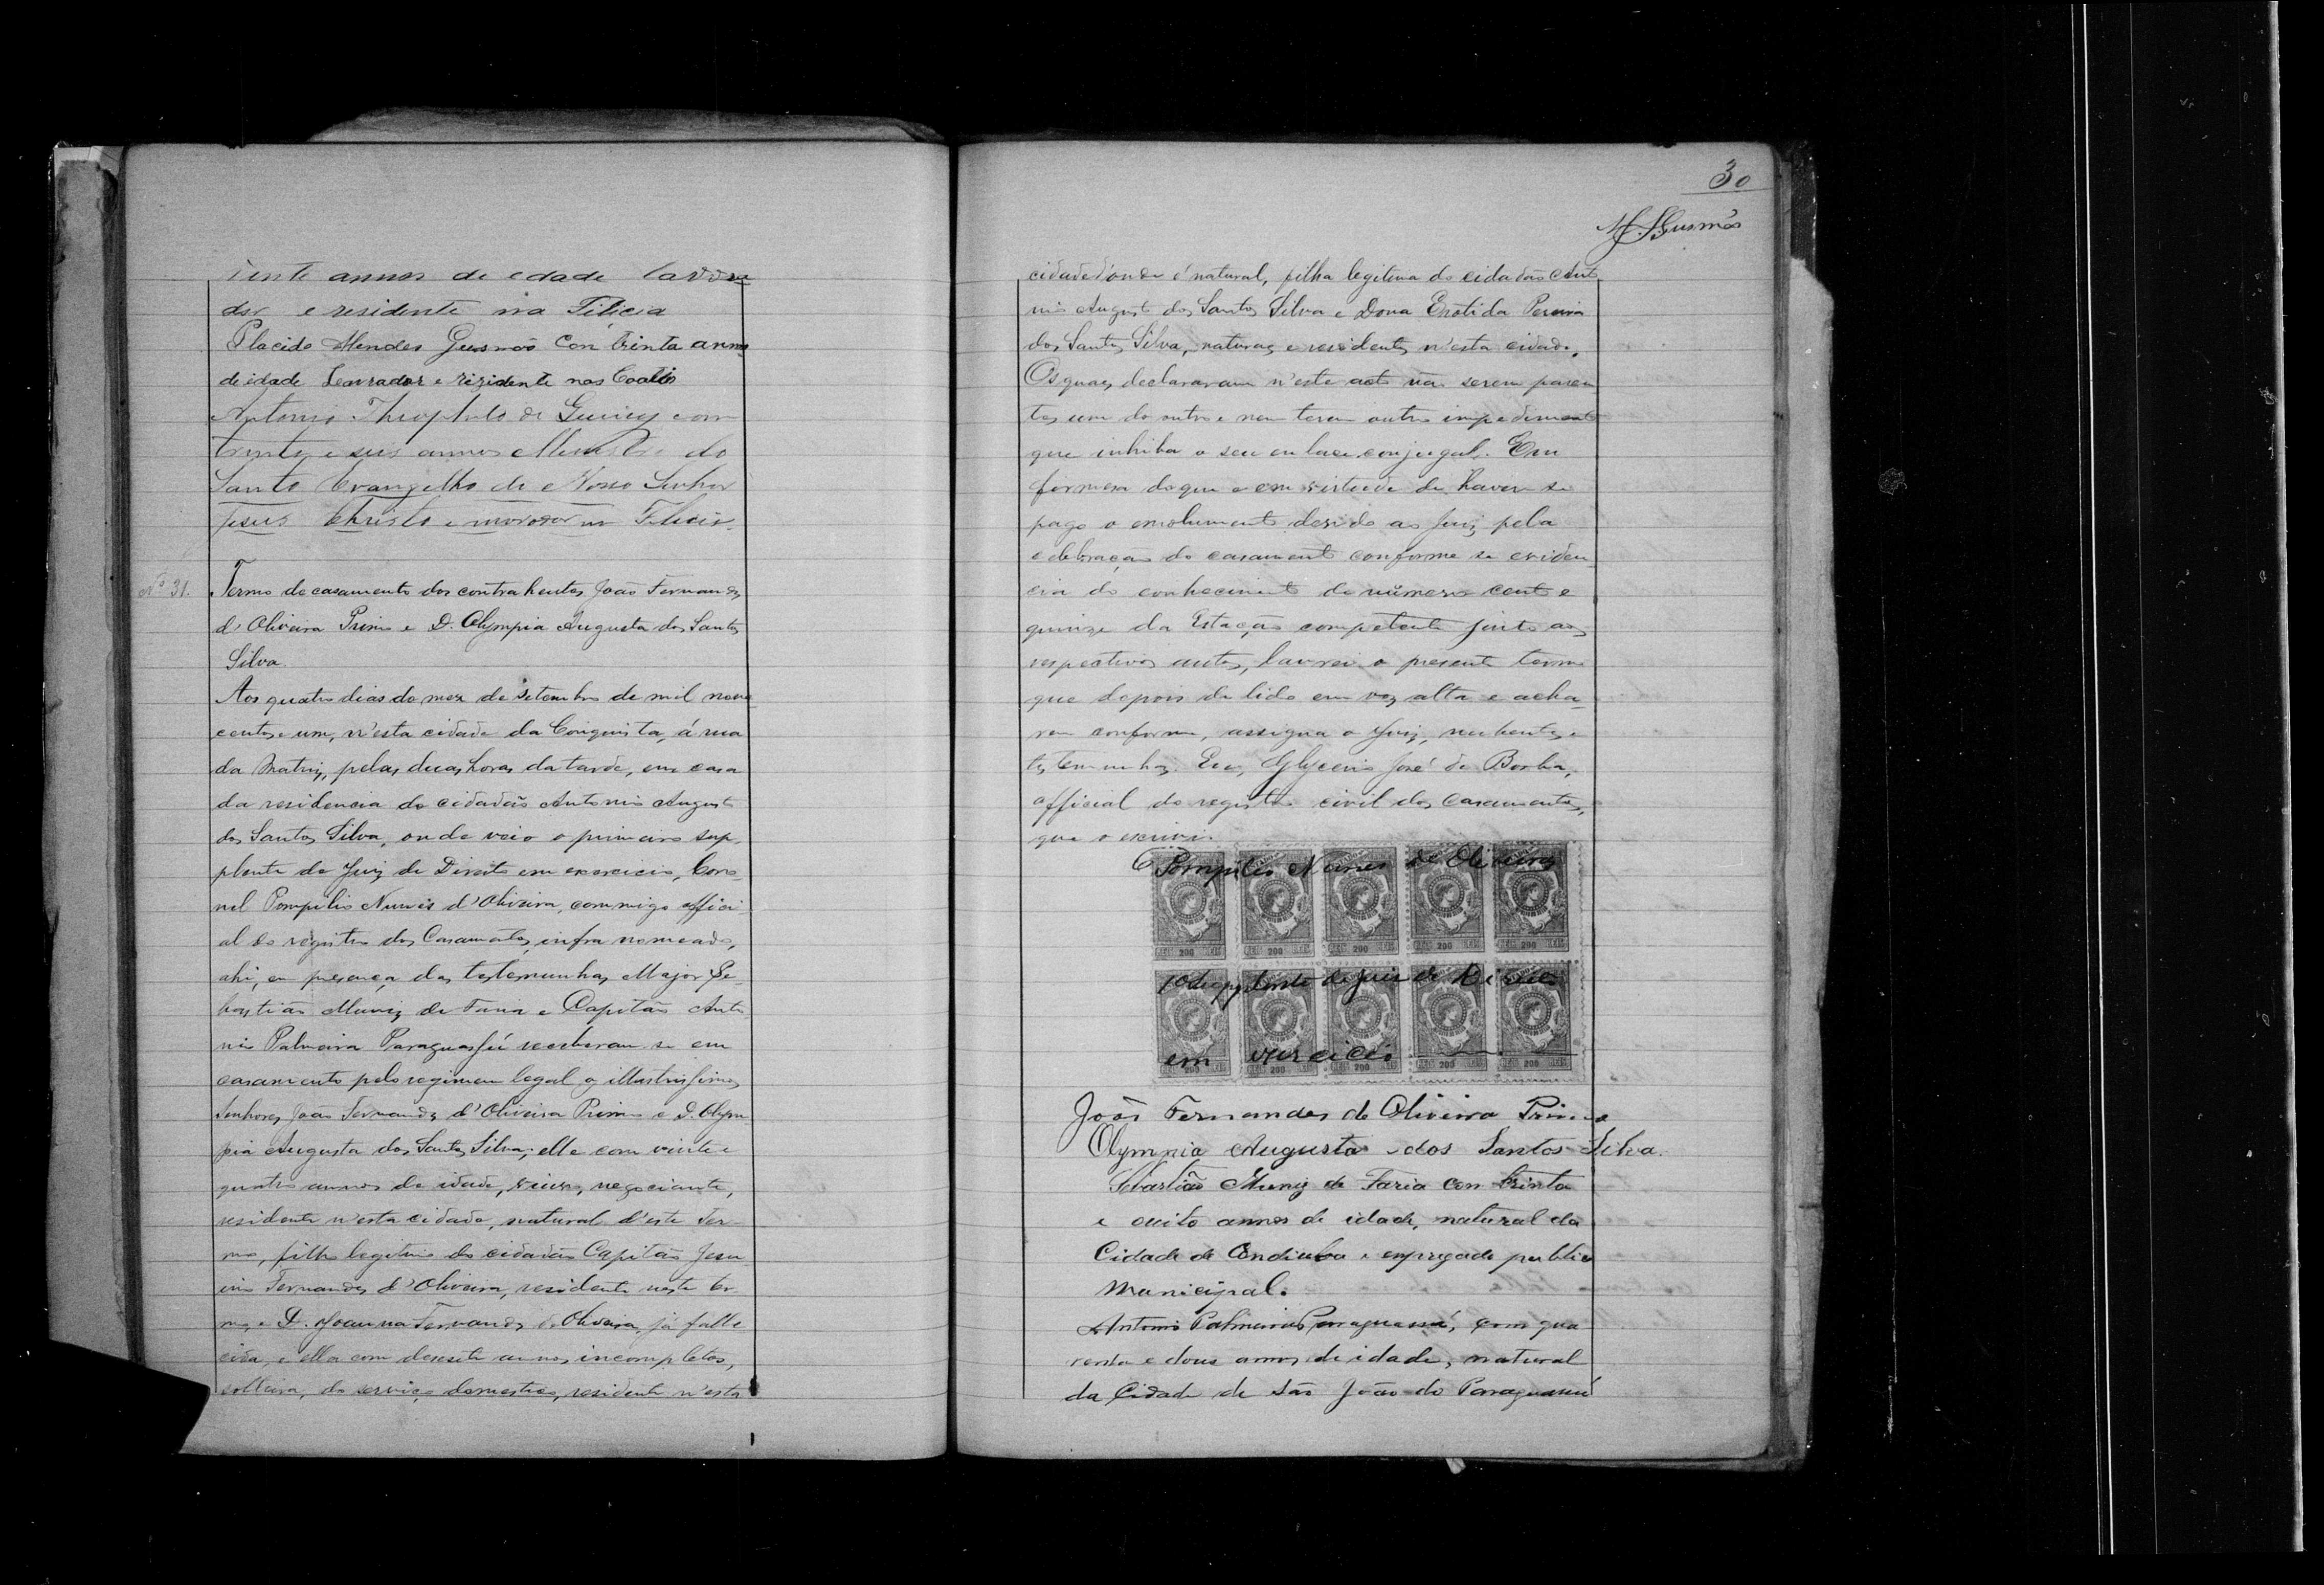 vinte annos de edade lavra
dor e residente na Felicia
Placido Mendes Gusmão con trinta annos
de idade Leavrador e rizidente nos Coatis
Antonio Theophilo de Queiroz com
trinta e seis annos Ministro do
Santo Evangelho de Nosso Senhor
Jesus Christo e morador na Felicia.
Nº 31.
Termo de casamento dos contrahentes João Fernandes
d'Oliveira Primo e D. Olympia Augusta dos Santos
Silva.
Aos quatro dias do mez de Setembro de mil nove
centos e um, n'esta cidade da Conquista, á rua
da Matriz, pelas duas horas da tarde, em casa
da residencia do cidadão Antonio Augusto
dos Santos Silva, onde veio o primeiro sup-
plente do Juiz de Direito em exercicio, Coro-
nel Pompilio Nunes d'Oliveira, commigo offici
al do registro dos Casamentos, infra nomeado,
ahi, em presença das testemunhas Major Se-
bastião Muniz de Faria e Capitão Anto
nio Palmeira Paraguassú receberam-se em
casamento pelo regimen legal os illustrissimos
Senhores João Fernandes d'Oliveira Primo e D. Olym
pia Augusta dos Santos Silva; elle com vinte e
quatro annos de idade, viuvo, negociante,
residente n'esta cidade, natural d'este Ter-
mo, filho legitimo do cidadão Capitão Jesu
ino Fernandes d'Oliveira, residente neste ter
mo, e D. Joanna Fernandes de Oliveira, já falle
cida, e ella com desesete annos incompletos,
solteira, do serviço domestico, residente n'esta
30
M. S. Gusmão
cidade d'onde é natural, filha legitima do cidadão Anto
nio Augusto dos Santos Silva e Dona Erotida Pereira
dos Santos Silva, naturaes e residentes n'esta cidade.
Os quaes declararam n'este acto não serem paren
tes um do outro e nem terem outro impedimento
que inhiba o seu enlace conjugal. Em
firmesa do que e em virtude de haver-se
pago o emolumento devido ao Juiz pela
celebração do casamento conforme se eviden
cia do conhecimento de número cento e
quinze da Estação competente junto aos
respectivos autos, lavrei o presente termo
que depois de lido em voz alta e acha-
rem conforme, assigna o Juiz, nubentes e
testemunhas. Eu, Glycerio José de Borba,
official do registro civil dos Casamentos,
que o escrevi.
Pompilio Nunes de Oliveira
1º Supplente do juis de Direito
em exercicio
200 200 200 200 200
200 200 200 200 200
João Fernandes de Oliveira Primo
Olympia Augusta dos Santos Silva.
Sebastião Muniz de Faria con trinta
e ouito annos de idade, natural da
Cidade de Condiuba e enpregado publico
Municipal.
Antonio Palmeira Paraguassú, com qua
renta e dous annos de idade, natural
da Cidade de São João do Paraguassú